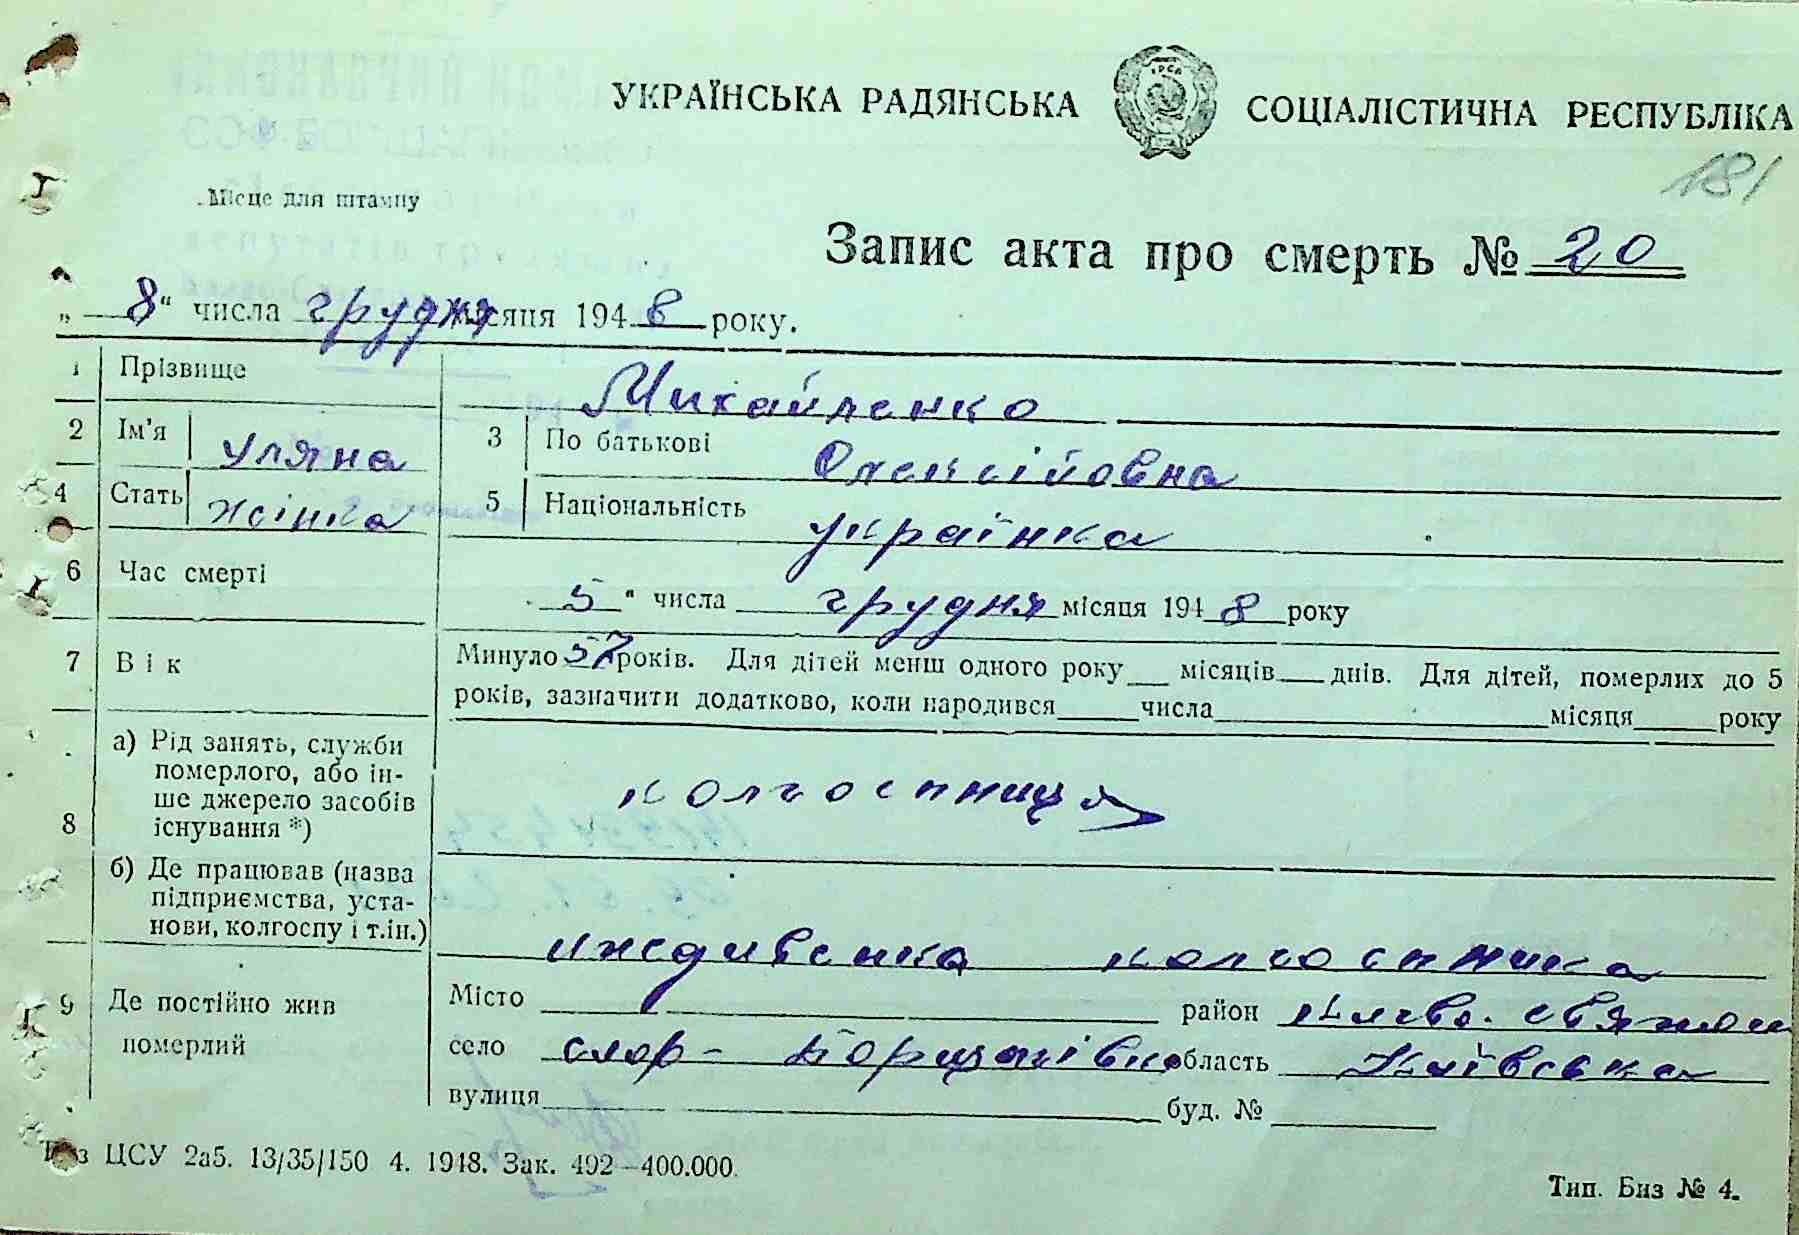 УКРАЇНСЬКА РАДЯНСЬКА СОЦІАЛІСТИЧНА РЕСПУБЛІКА
181
Місце для штампу
Запис акта про смерть № 20
„ 8 “ числа грудня місяця 1948 року.
1 Прізвище Михайленко
2 Ім’я Уляна 3 По батькові Олексійовна
4 Стать жінка 5 Національність українка
6 Час смерті 5 “ числа грудня місяця 1948 року
7 Вік Минуло 57 років. Для дітей менш одного року місяців днів. Для дітей, померлих до 5
років, зазначити додатково, коли народився числа місяця року
8 а) Рід занять, служби
померлого, або ін-
ше джерело засобів
існування *) колгоспниця
б) Де працював (назва
підприємства, уста-
нови, колгоспу і т.ін.) иждивенка колгоспника
9 Де постійно жив
померлий
Місто район Києво. Святош
село Борщагівка область Київська
вулиця буд. №
ЦСУ 2а5. 13/35/150 4. 1948. Зак. 492—400.000.
Тип. Виз № 4.